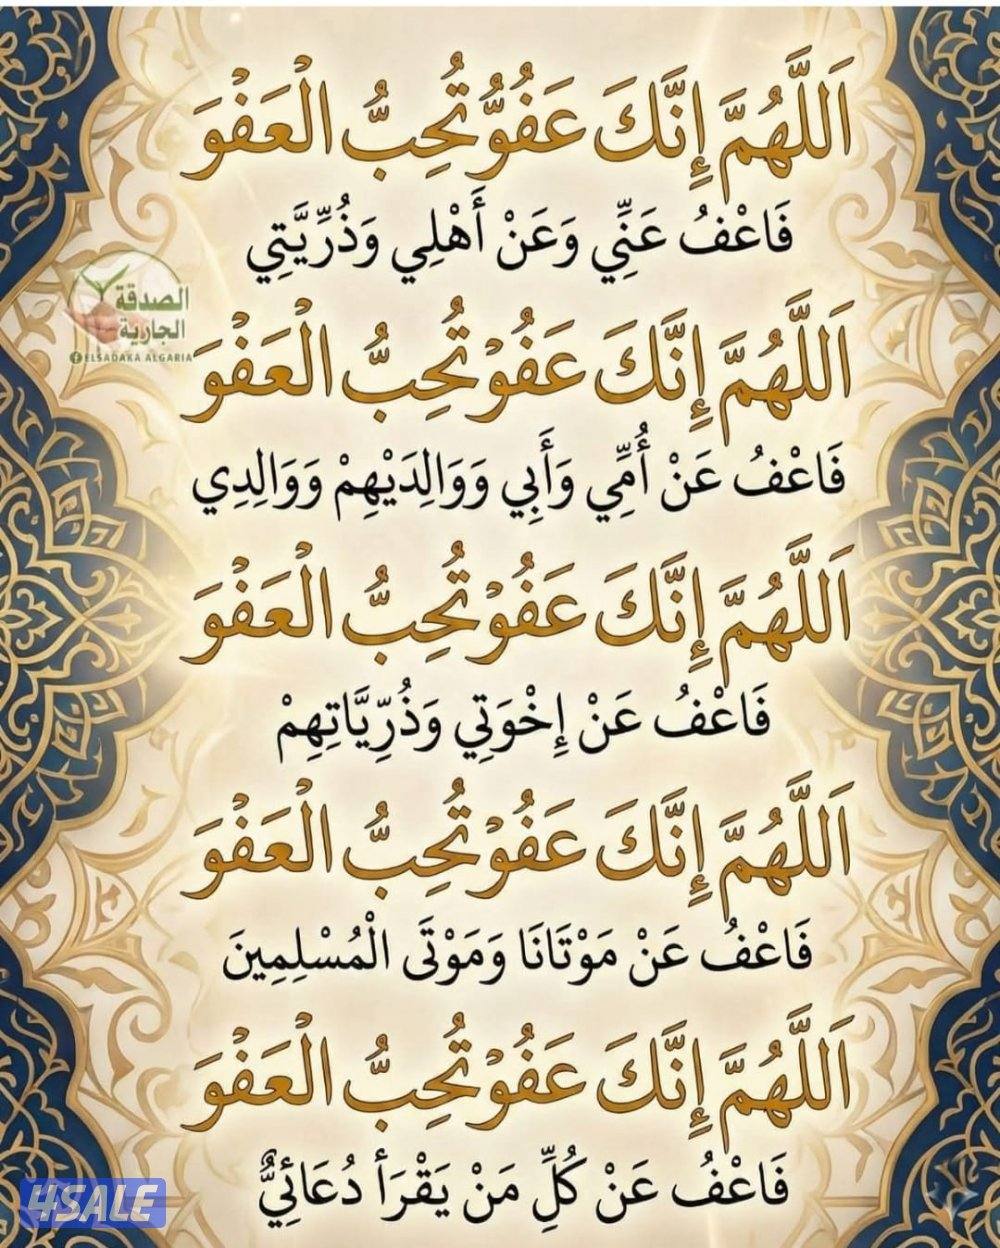 اَللَّهُمَّ إِنَّكَ عَفُوٌّ تُحِبُّ الْعَفْوَ
فَاعْفُ عَنِّي وَعَنْ أَهْلِي وَذُرِّيَّتِي
الصدقة
الجارية
ELSADAKA ALGARIA
اَللَّهُمَّ إِنَّكَ عَفُوْ تُحِبُّ الْعَفْوَ
فَاعْفُ عَنْ أُمِّي وَأَبِي وَوَالِدَيْهِمْ وَوَالِدِي
اَللَّهُمَّ إِنَّكَ عَفُوْ تُحِبُّ الْعَفْوَ
فَاعْفُ عَنْ إِخْوَتِي وَذُرِّيَّاتِهِمْ
اَللَّهُمَّ إِنَّكَ عَفُوْ تُحِبُّ الْعَفْوَ
فَاعْفُ عَنْ مَوْتَانَا وَمَوْتَى الْمُسْلِمِينَ
اَللَّهُمَّ إِنَّكَ عَفُوْ تُحِبُّ الْعَفْوَ
فَاعْفُ عَنْ كُلِّ مَنْ يَقْرَأ دُعَائِيٌّ
4SALE